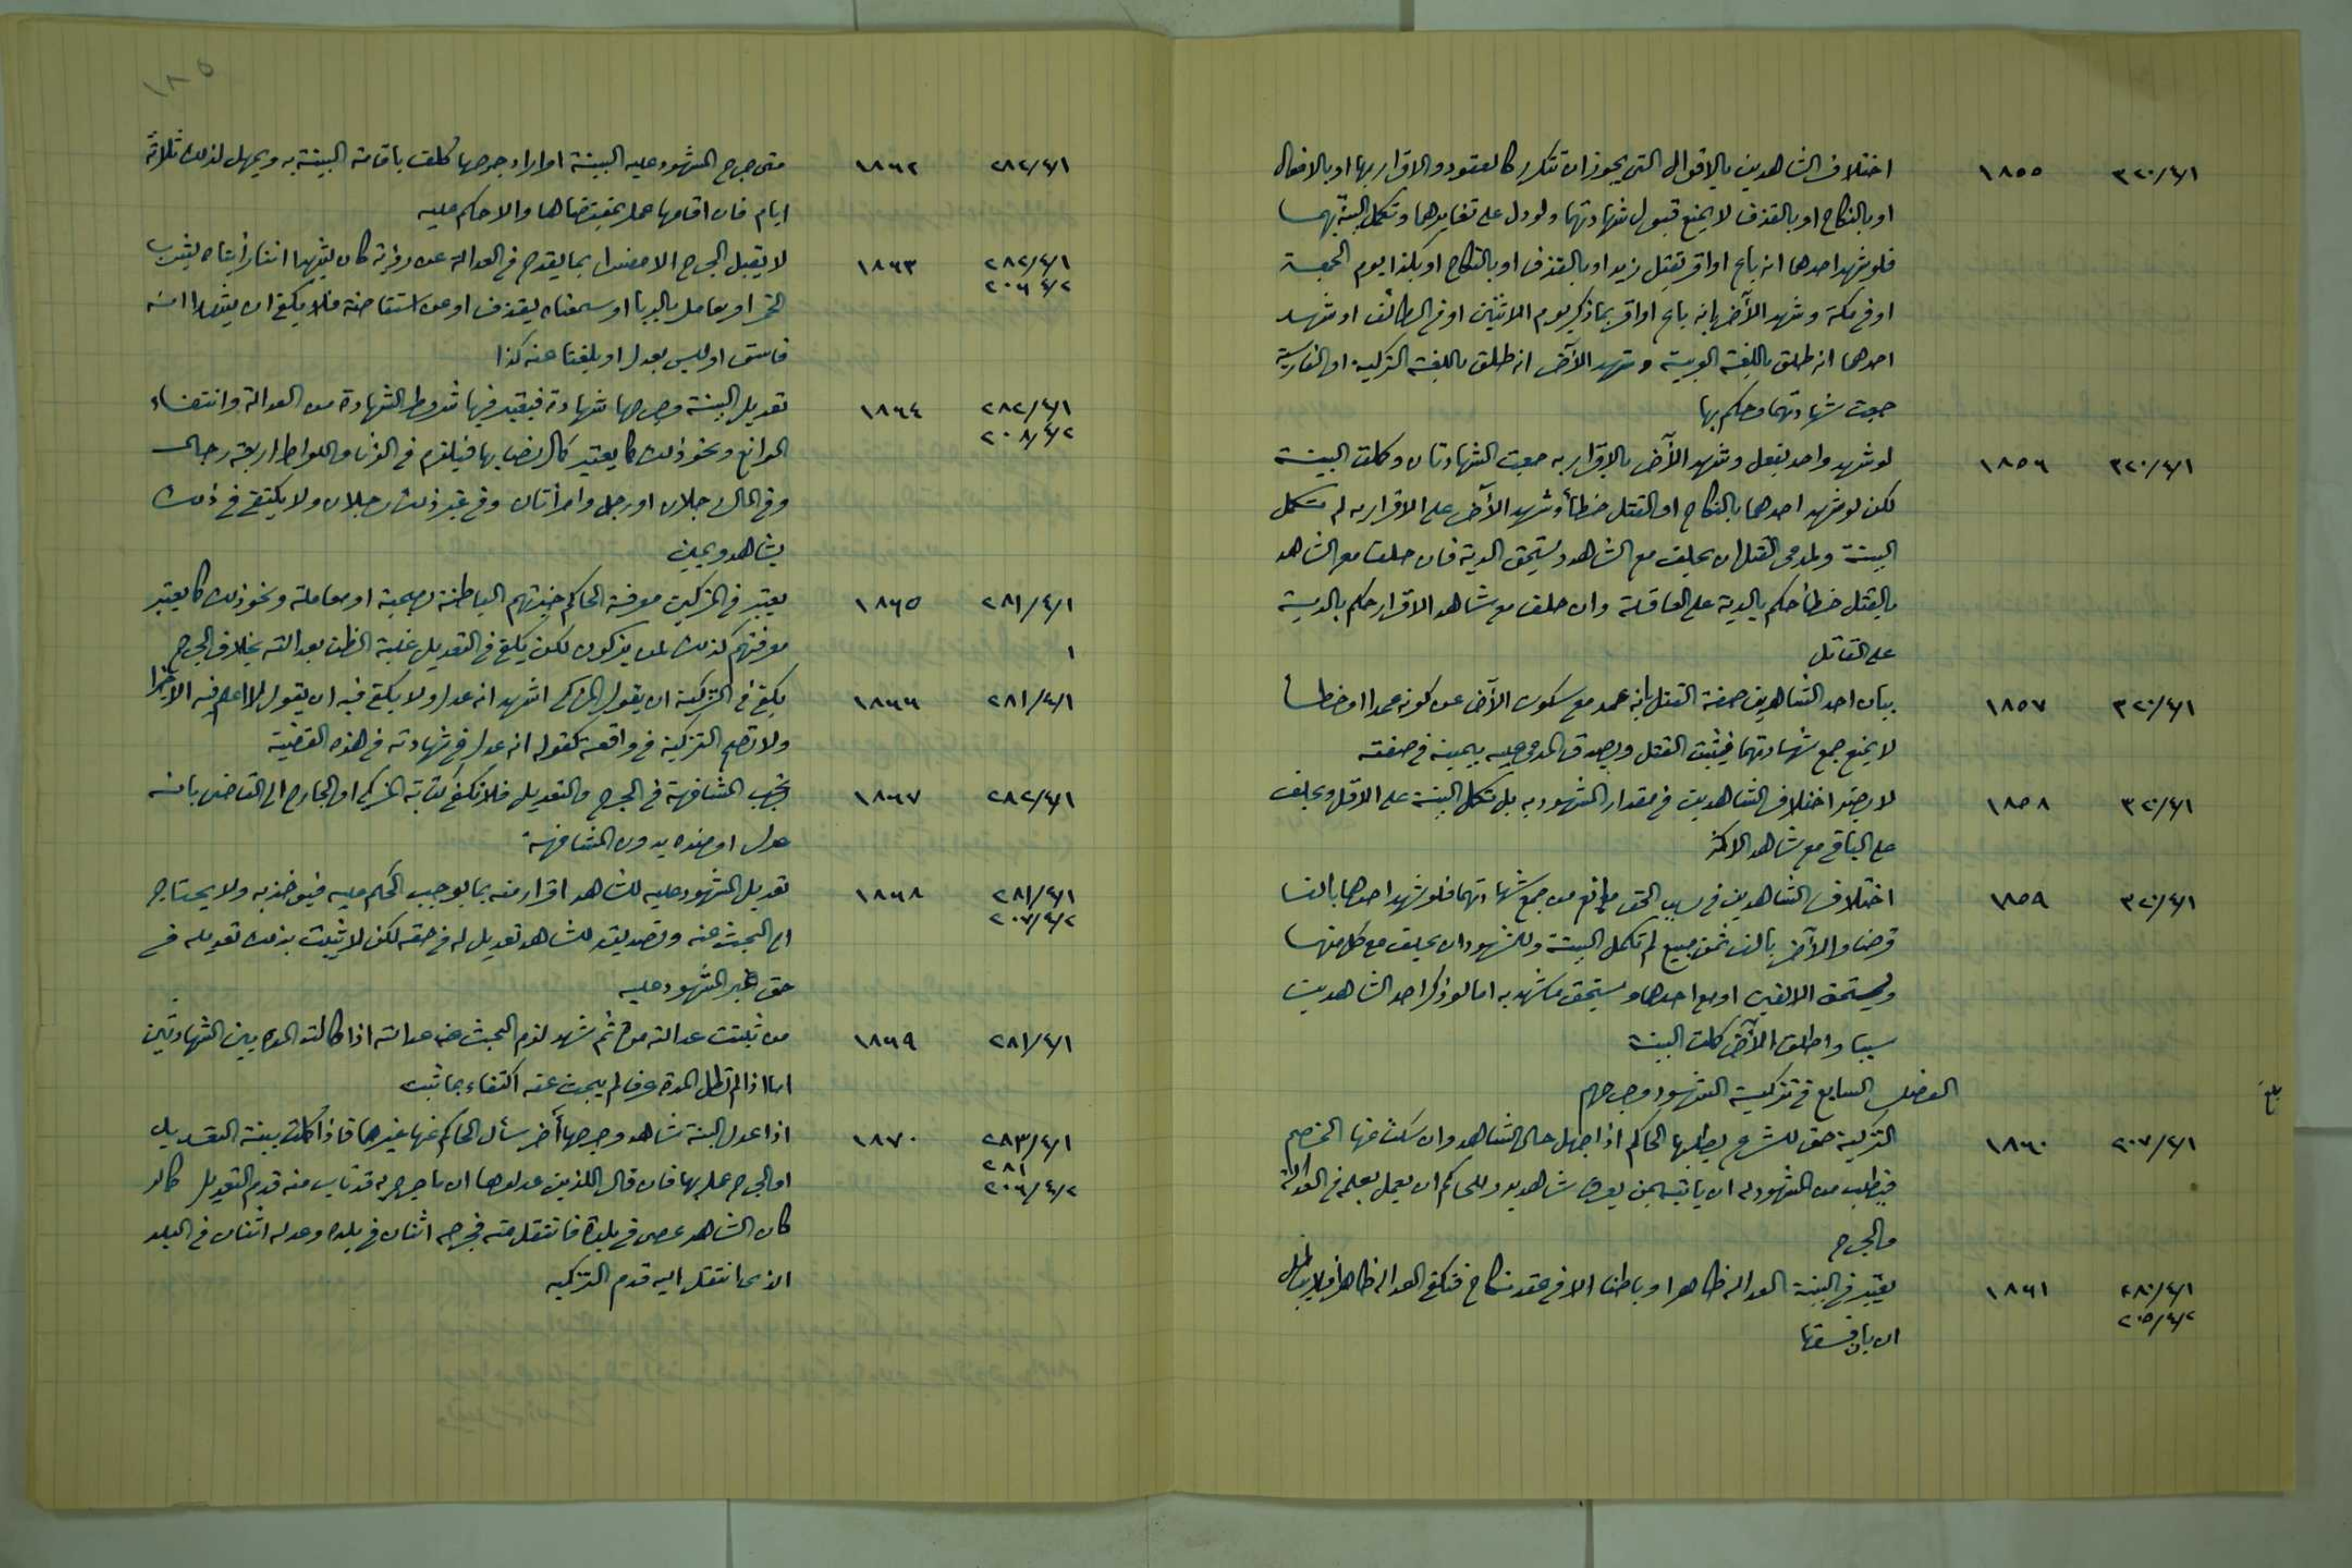 ٣٢٠/٤/١ ١٨٥٥ اختلاف الشاهدين بالاقوال التي يجوز ان تتكرر كالعقود والاقرار بها او بالافعال
او بالنكاح او بالقذف لا يمنع قبول شهادتهما ولو دل على تغايرهما وتكمل البينة بهما
فلو شهد احدهما انه باع او اقر بقتل زيد او بالقذف او بالنكاح او بكذا يوم الجمعة
او في مكة وشهد الآخر بانه باع او اقر بما ذكر يوم الاثنين او في الطائف او شهد
احدهما انه طلق باللغة العربية وشهد الآخر انه طلق باللغة التركية او الفارسية
جمعت شهادتهما وحكم بها
٣٢٠/٤/١ ١٨٥٦ لو شهد واحد بفعل وشهد الآخر بالاقرار به جمعت الشهادتان وكملت البينة
لكن لو شهد احدهما بالنكاح او القتل خطأ وشهد الآخر على الاقرار به لم تكمل
البينة ولمدعى القتل ان يحلف مع الشاهد ويستحق الدية فان حلف مع الشاهد
بالقتل خطأ حكم بالدية على العاقلة وان حلف مع شاهد الاقرار حكم بالدية
على القاتل
٣٢٠/٤/١ ١٨٥٧ بيان احد الشاهدين صفة القتل بانه عمد مع سكوت الآخر عن كونه عمدا او خطأ
لا يمنع جمع شهادتهما فيثبت القتل ويصدق المدعى عليه بيمينه في صفته
٣٢٠/٤/١ ١٨٥٨ لا يضر اختلاف الشاهدين في مقدار المشهود به بل تكمل البينة على الاقل ويحلف
على الباقي مع شاهد الاكثر
٣٢٠/٤/١ ١٨٥٩ اختلاف الشاهدين في سبب الحق مانع من جمع شهادتهما فلو شهد احدهما بالف
قرضا والآخر بالف ثمن مبيع لم تكمل البينة وللمشهود ان يحلف مع كل منهما
ويستحق الالفين او مع احدهما ويستحق ما شهد به اما لو ذكر احد الشاهدين
سببا واطلق الآخر كملت البينة
الفصل السابع في تزكية الشهود وجرحهم
بلغ
٢٠٧/٤/١ ١٨٦٠ التزكية حق للشرع يطلبها الحاكم اذا جهل حال الشاهد وان سكت عنها الخصم
فيطلب من المشهود له ان يأتيه بمن يعدل شاهديه وللحاكم ان يعمل بعلمه في العدالة
والجرح
٢٨٠/٤/١ ١٨٦١ يعتبر في البينة العدالة ظاهرا وباطنا الا في عقد نكاح فتكفي العدالة ظاهرا فلا يبطل
٢٠٥/٤/٢
ان بان فسقها
١٨٥
٢٨٢/٤/١ ١٨٦٢ متى جرح المشهود عليه البينة او اراد جرحها كلف باقامة البينة به ويمهل لذلك ثلاثة
ايام فان اقامها عمل بمقتضاها والا حكم عليه
٢٨٢/٤/١ ١٨٦٣ لا يقبل الجرح الا مفسرا بما يقدح في العدالة عن رؤية كان يشهدا اننا رأيناه يشرب
٢٠٦/٤/٢
الخمر او يعامل بالربا او سمعناه يقذف او عن استفاضة فلا يكفي ان يشهدا انه
فاسق او ليس بعدل او بلغنا عنه كذا
٢٨٢/٤/١ ١٨٦٤ تعديل البينة وجرحها شهادة فيعتبر فيها شروط الشهادة من العدالة وانتفاء
٢٠٨/٤/٢
الموانع ونحو ذلك كما يعتبر كمال نصابها فيلزم في الزنا واللواط اربعة رجال
وفي المال رجلان او رجل وامرأتان وفي غير ذلك رجلان ولا يكتفى في ذلك
بشاهد ويمين
٢٨١/٤/١ ١٨٦٥ يعتبر في المزكين معرفة الحاكم خبرتهم الباطنة بصحبة او معاملة ونحو ذلك كما يعتبر
١
معرفتهم كذلك لمن يزكون لكن يكفي في التعديل غلبة الظن بعدالته بخلاف الجرح
٢٨١/٤/١ ١٨٦٦ يكفي في التزكية ان يقول المزكى اشهد انه عدل ولا يكفي فيه ان يقول لا اعلم فيه الا خيرا
ولا تصح التزكية في واقعة كقوله انه عدل في شهادته في هذه القضية
٢٨٢/٤/١ ١٨٦٧ تجب المشافهة في الجرح والتعديل فلا تكفي كتابة المزكى او الجارح الى القاضى بانه
عدل او ضده بدون المشافهة
٢٨١/٤/١ ١٨٦٨ تعديل المشهود عليه للشاهد اقرار منه بما يوجب الحكم عليه فيؤخذ به ولا يحتاج
٢٠٧/٤/٢
الى البحث عنه وتصديقه للشاهد تعديل له في حقه لكن لا يثبت بذلك تعديله في
حق غير المشهود عليه
٢٨١/٤/١ ١٨٦٩ من ثبتت عدالته مرة ثم شهد لزم البحث عن عدالته اذا طالت المدة بين الشهادتين
اما اذا لم تطل المدة عرفا لم يبحث عنه اكتفاء بما ثبت
٢٨٣/٤/١ ١٨٧٠ اذا عدل البينة شاهد وجرحها آخر سأل الحاكم عنها غيرهما فاذا كملت بينة التعديل
٢٨١
٢٠٦/٤/٢ او الجرح عمل بها فان قال اللذين عدلاها ان ما جرح به قد تاب منه قدم التعديل كما لو
كان الشاهد عصى في بلده فانتقل منه فجرحه اثنان في بلده وعدله اثنان في البلد
الذى انتقل اليه قدم التزكية